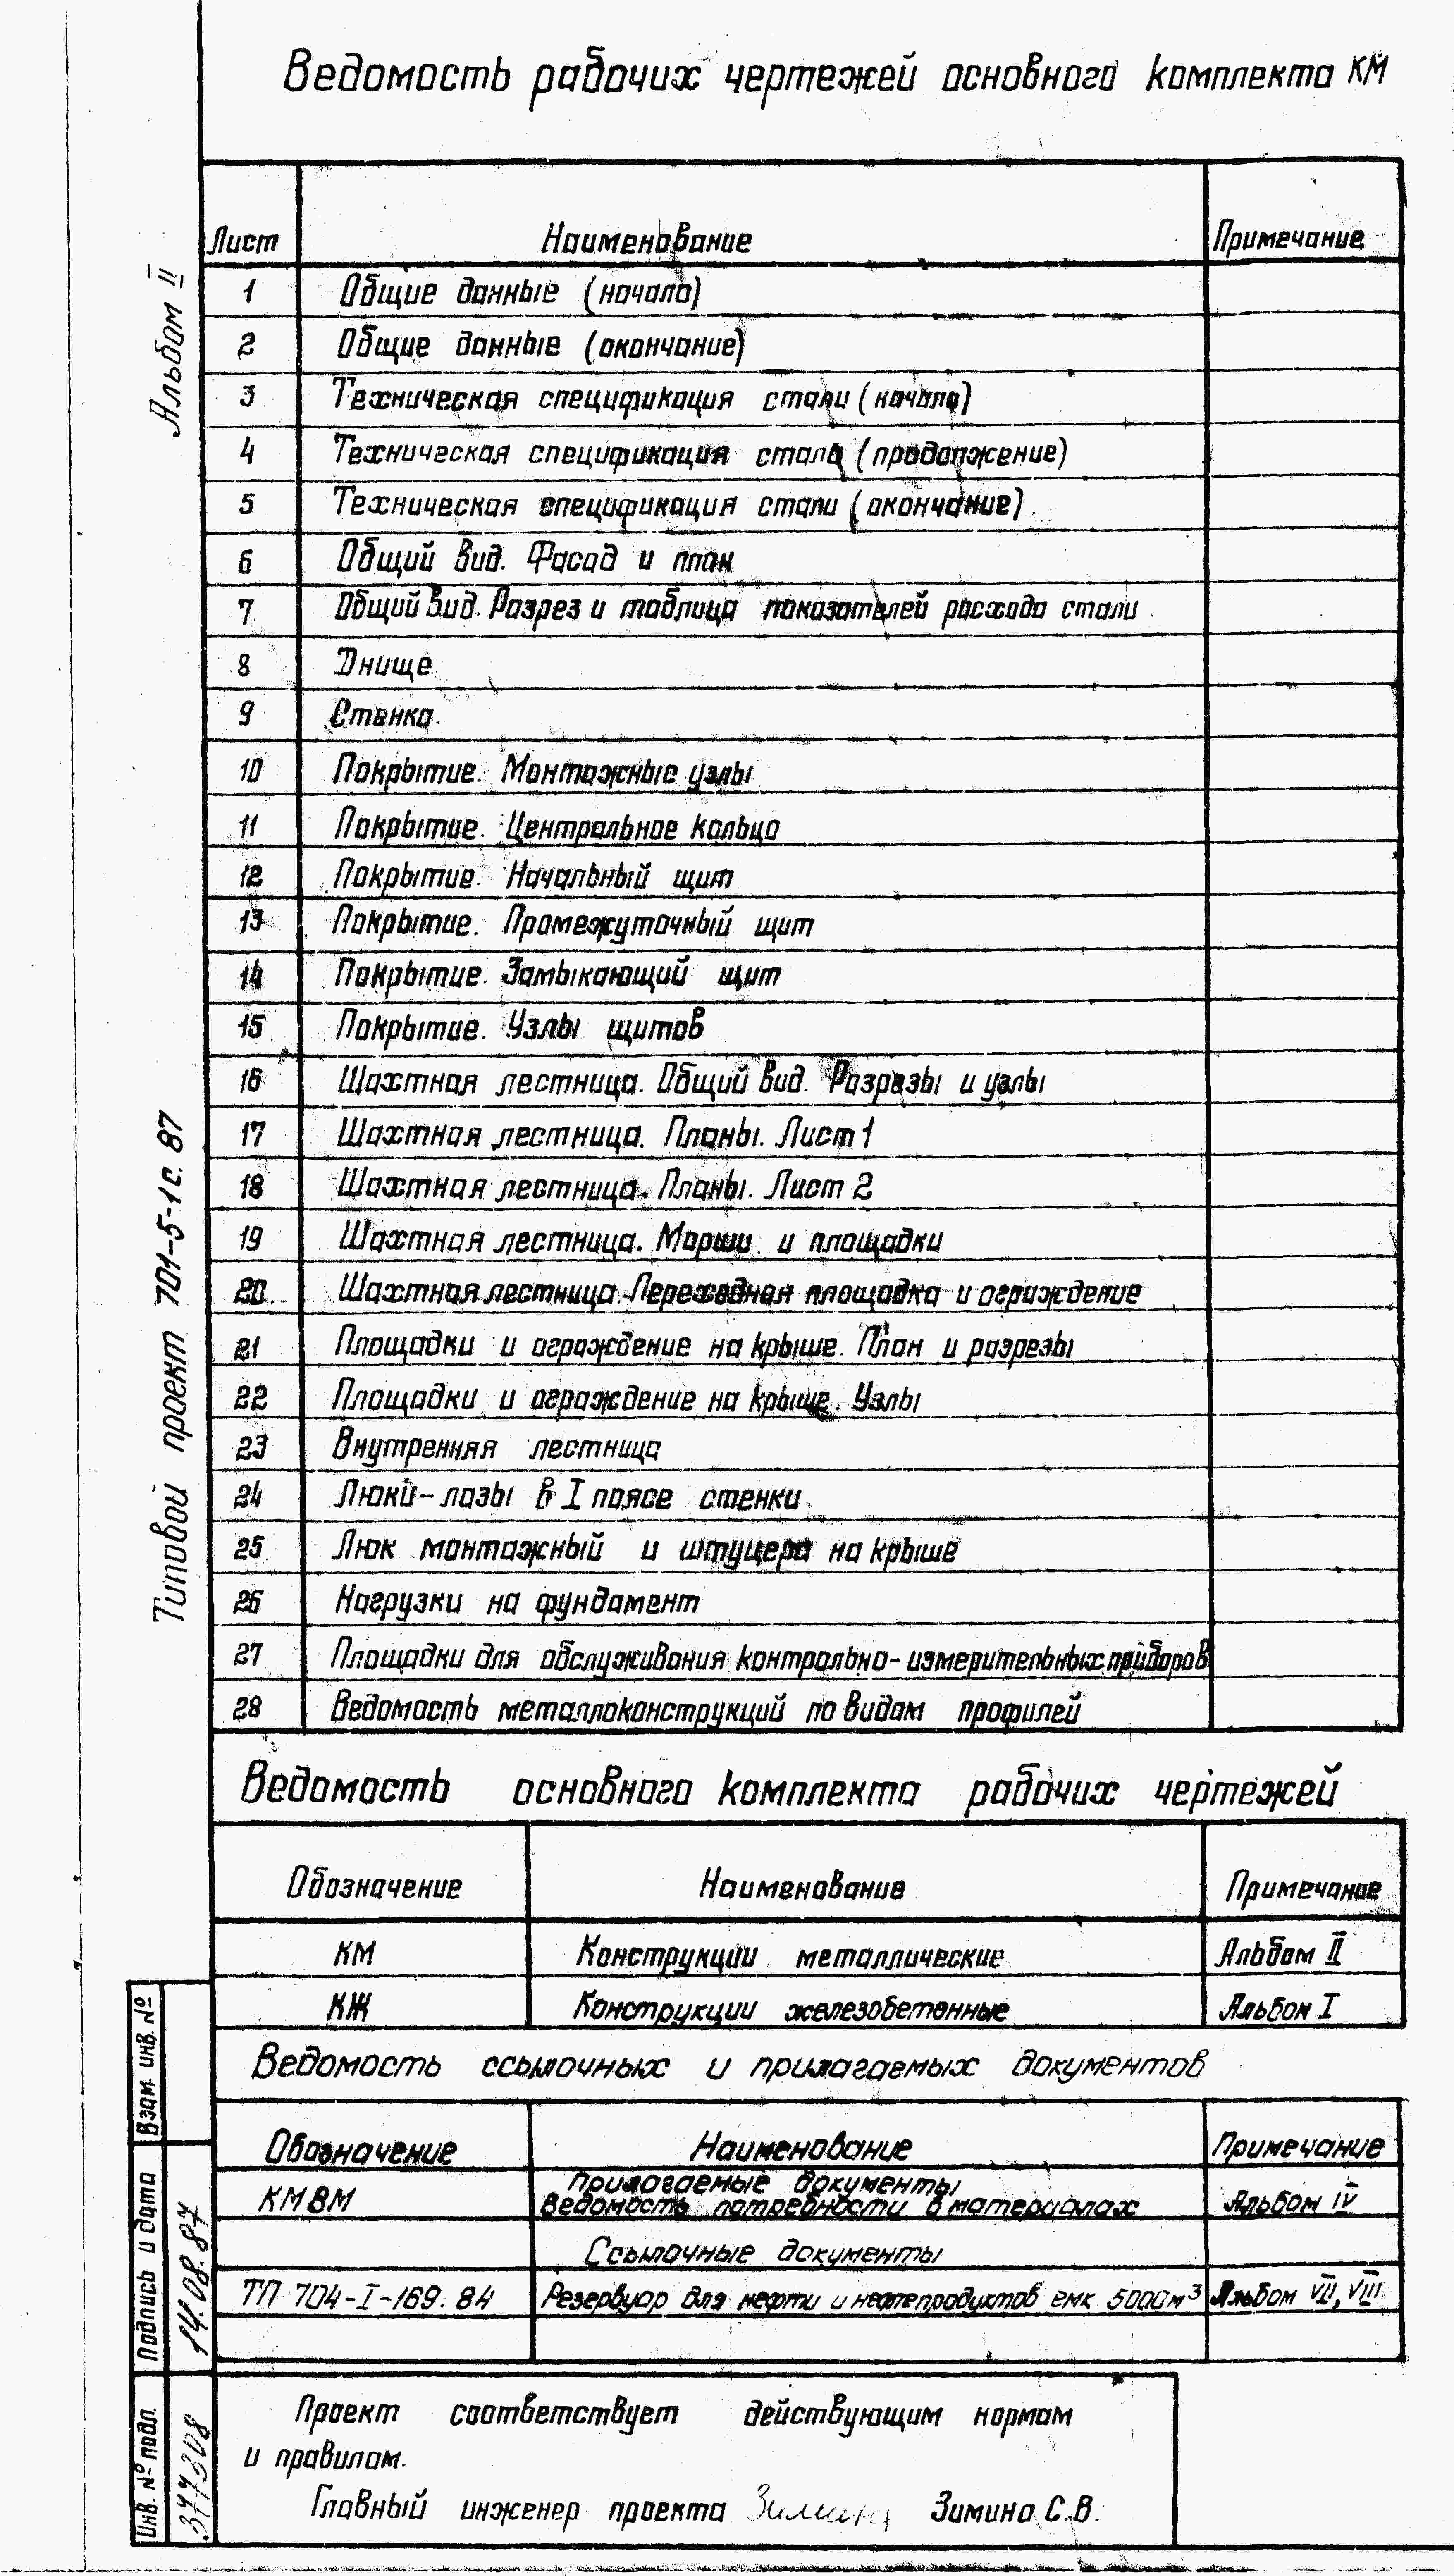 Ведомость рабочих чертежей основного комплекта КМ
Лист Наименование Примечание
1 Общие данные (начало)
2 Общие данные (окончание)
3 Техническая спецификация стали (начало)
4 Техническая спецификация стали (продолжение)
5 Техническая спецификация стали (окончание)
6 Общий вид. Фасад и план
7 Общий вид. Разрез и таблица показателей расхода стали
8 Днище
9 Стенка.
10 Покрытие. Монтажные узлы
11 Покрытие. Центральное кольцо
12 Покрытие. Начальный щит
13 Покрытие. Промежуточный щит
14 Покрытие. Замыкающий щит
15 Покрытие. Узлы щитов
16 Шахтная лестница. Общий вид. Разрезы и узлы
17 Шахтная лестница. Планы. Лист 1
18 Шахтная лестница. Планы. Лист 2
19 Шахтная лестница. Марши и площадки
20 Шахтная лестница. Переходная площадка и ограждение
21 Площадки и ограждение на крыше. План и разрезы
22 Площадки и ограждение на крыше. Узлы
23 Внутренняя лестница
24 Люки-лазы в I поясе стенки
25 Люк монтажный и штуцера на крыше
26 Нагрузки на фундамент
27 Площадки для обслуживания контрольно-измерительных приборов
28 Ведомость металлоконструкций по видам профилей
Ведомость основного комплекта рабочих чертежей
Обозначение Наименование Примечание
КМ Конструкции металлические Альбом II
КЖ Конструкции железобетонные Альбом I
Ведомость ссылочных и прилагаемых документов
Обозначение Наименование Примечание
Прилагаемые документы
КМВМ Ведомость потребности в материалах Альбом IV
Ссылочные документы
ТП 704-I-169.84 Резервуар для нефти и нефтепродуктов емк. 5000м³ Альбом VII, VIII
Проект соответствует действующим нормам
и правилам.
Главный инженер проекта Зимина Зимина С.В.
Альбом II
Типовой проект 701-5-1с.87
Взам. инв. №
Подпись и дата 14.08.87
Инв. № подл. 377308